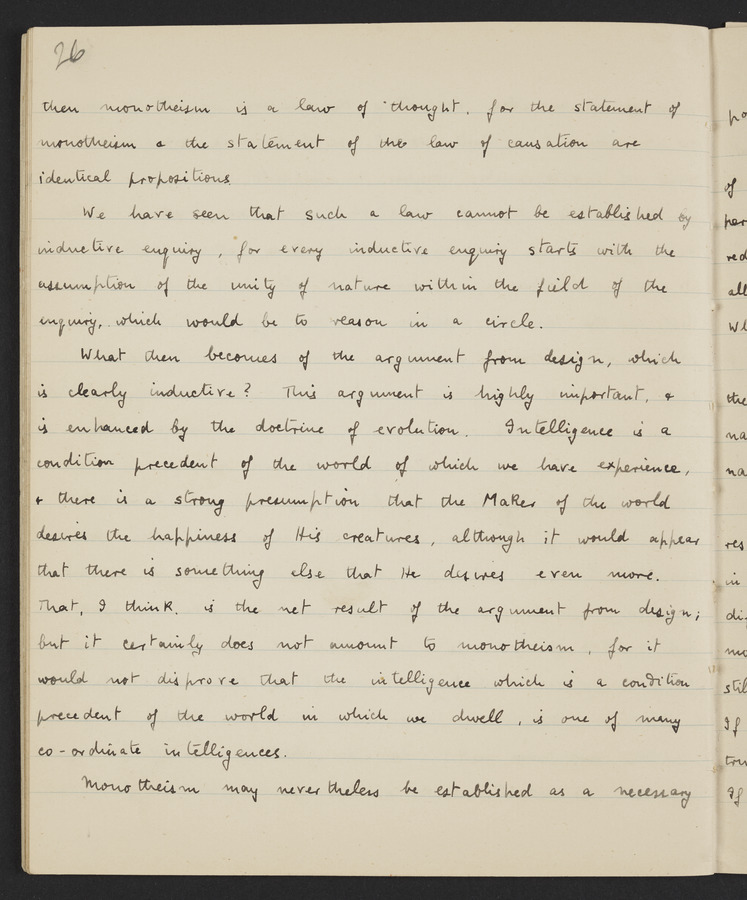 26
then monotheism is a law of thought, for the statement of
monotheism & the statement of the law of causation are
identical propositions.
We have seen that such a law cannot be established by
inductive enquiry, for every inductive enquiry starts with the
assumption of the unity of nature within the field of the
enquiry, which would be to reason in a circle.
What then becomes of the argument from design, which
is clearly inductive? This argument is highly important, &
is enhanced by the doctrine of evolution. Intelligence is a
condition precedent of the world of which we have experience,
& there is a strong presumption that the Maker of the world
desires the happiness of His creatures, although it would appear
that there is something else that He desires even more.
That, I think, is the net result of the argument from design;
but it certainly does not amount to monotheism, for it
would not disprove that the intelligence which is a condition
precedent of the world in which we dwell, is one of many
co-ordinate intelligences.
Monotheism may nevertheless be established as a necessary